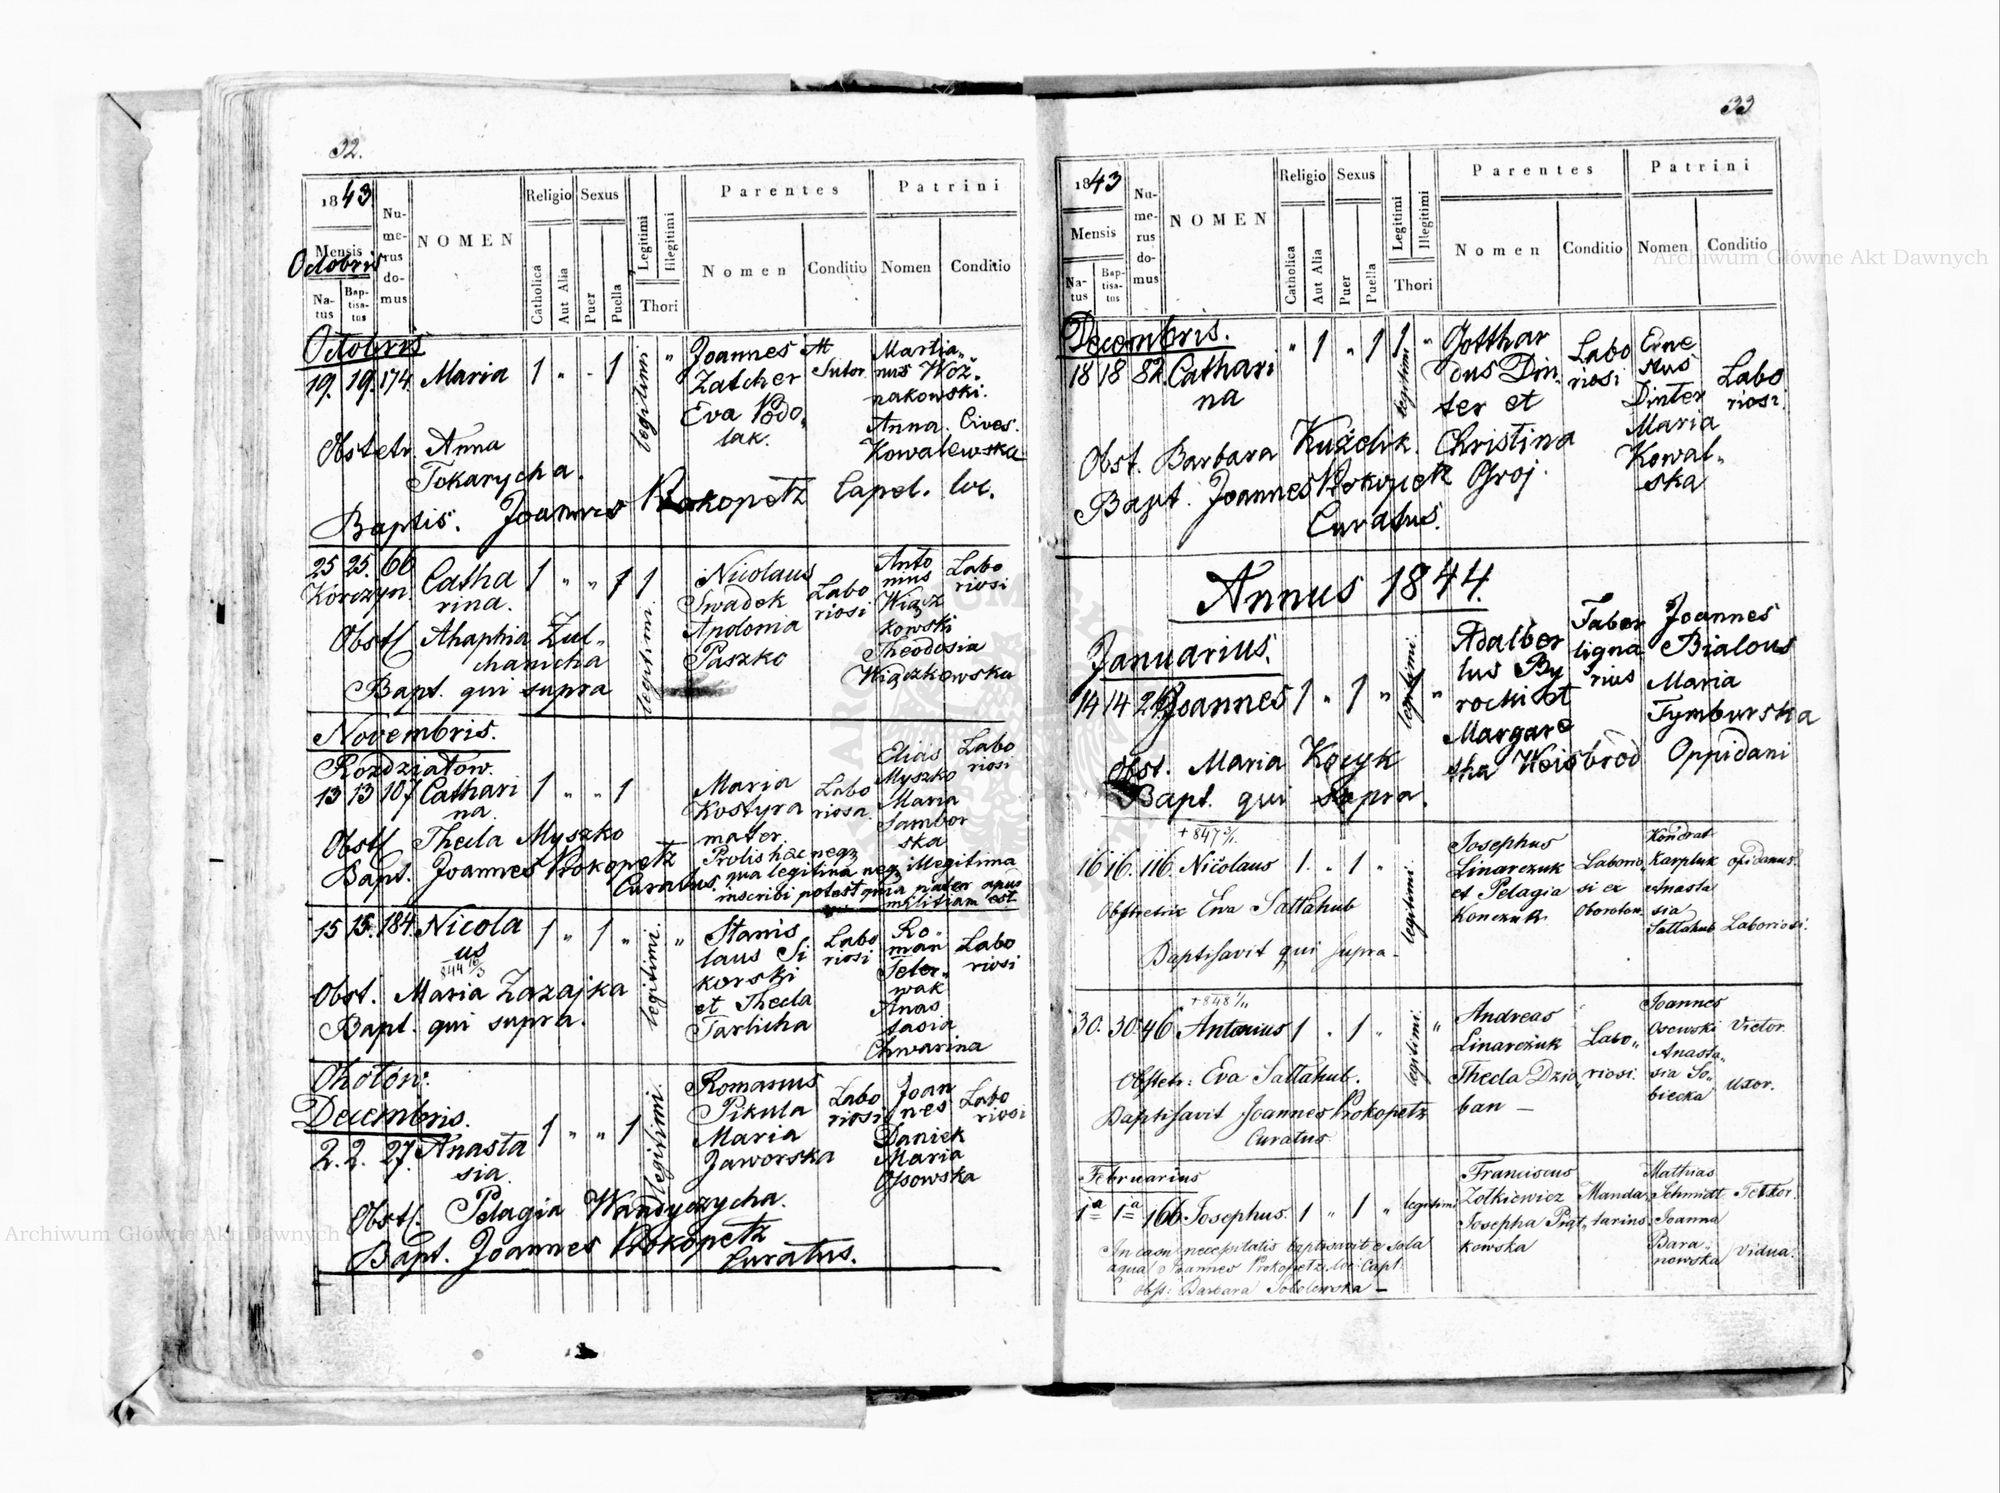 32.
1843
Mensis
Octobris
Natus
Baptisatus
Numerus domus
NOMEN
Religio
Catholica
Aut Alia
Sexus
Puer
Puella
Legitimi
Illegitimi
Thori
Parentes
Nomen
Conditio
Patrini
Nomen
Conditio
Octobris
19. 19. 174. Maria 1 " - 1 legitimi "
Joannes
Zatcher
Eva Podo„
lak.
Sutor
Martia„
nus Woz„
nakowski.
Anna Cives.
Kowalewska
Obstetr. Anna
Tokarycha.
Baptis. Joannes Prokopetz Capel. loc.
25 25. 66 Catha
rina. 1 " " 1 1 legitimi
Korczyn.
Nicolaus
Swadek
Apolonia
Paszko
Labo
riosi
Anto
nius
Wiącz
kowski
Theodosia
Wiączkowska
Labo
riosi
Obstl Ahaphia Zul„
chanicha
Bapt. qui supra
Novembris.
Rozdziatow.
13 13 107 Cathari
na. 1 " " 1
Maria
Kostyra
mater.
Labo
riosa.
Elias
Myszko
Maria
Sambor
ska
Labo
riosi
Obstl Thecla Myszko
Bapt. Joannes Prokopetz
Curatus.
Prolis haec neq
qua legitima neq illegitima
inscribi potest quia pater apud
militiam est
15 15. 184. Nicola
us 1 " 1 " legitimi. "
Stanis
laus Si
korski
et Thecla
Tarlicha
Labo
riosi
Ro-
man
Teter„
wak
Anas
tasia
Chwarina
Labo
riosi
Obst. Maria Zazajka
Bapt. qui supra.
Chotów.
Decembris.
2. 2. 27. Anasta
sia. 1 " " 1 legitimi.
Romanus
Pikula
Maria
Jaworska
Labo
riosi
Joan
nes
Daniek
Maria
Ossowska
Labo
riosi
Obstl. Pelagia Wandyczycha.
Bapt. Joannes Prokopetz
Curatus.
33
1843
Mensis
Natus
Baptisatus
Numerus domus
NOMEN
Religio
Catholica
Aut Alia
Sexus
Puer
Puella
Legitimi
Illegitimi
Thori
Parentes
Nomen
Conditio
Patrini
Nomen
Conditio
Decembris.
18 18 82. Cathari
na " 1 " 1 1 legitimi "
Gotthar
dus Din„
ter et
Christina
Groj.
Labo
riosi
Erne
stus
Dinter
Maria
Kowal„
ska
Labo
riosi
Obst. Barbara Kuźdık.
Bapt. Joannes Prokopetz
Curatus.
Annus 1844.
Januarius.
14 14 Joannes 1 " 1 " legitimi. "
Adalber
tus By
rochi et
Margare
tha Weisbrod
Faber
ligna
rius
Joannes
Bialous
Maria
Tymburska
Oppidani
Obst. Maria Kocyk
Bapt. qui supra.
16 16. 116. Nicolaus 1. " 1 " legitimi.
Josephus
Linarczuk
et Pelagia
Konczuk
Laborio„
si ex
Kondrat
Karpluk
Anasta
sia
Sattahub
opidanus.
Laboriosi.
Obstetrix Eva Sattahub
Baptisavit qui supra.
30. 30. 46 Antonius 1 " 1 " legitimi. "
Andreas
Linarczuk
Thecla Dzio„
ban —
Labo„
riosi.
Joannes
Osowski
Anasta„
sia So„
biecka
Victor.
Uxor.
Obstetr: Eva Sattahub.
Baptisavit Joannes Prokopetz
Curatus
Februarius
1ª 1ª 166 Josephus. 1 " 1 " legitimi
Franciscus
Zotkiewicz
Josepha Piąt„
kowska
Manda„
tarius
Mathias
Schmidt
Joanna
Bara„
nowska
Textor.
Vidua.
In casu necessitatis baptisavit e sola
aqua Joannes Prokopetz loc: Capl.
Obst: Barbara Sobolewska —
Archiwum Główne Akt Dawnych
Archiwum Główne Akt Dawnych